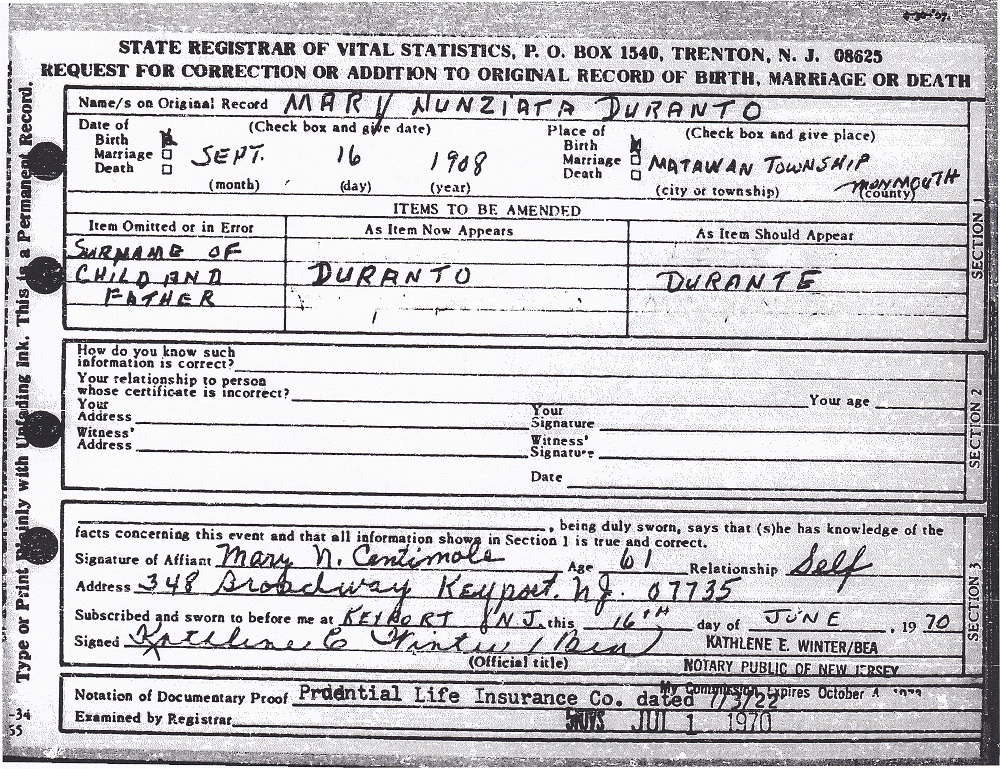 STATE REGISTRAR OF VITAL STATISTICS, P. O. BOX 1540, TRENTON, N. J. 08625
REQUEST FOR CORRECTION OR ADDITION TO ORIGINAL RECORD OF BIRTH, MARRIAGE OR DEATH
Type or Print Plainly with Unfading Ink. This is a Permanent Record.
Name/s on Original Record MARY NUNZIATA DURANTO
Date of (Check box and give date) Place of (Check box and give place)
Birth Birth
Marriage SEPT. 16 1908 Marriage MATAWAN TOWNSHIP MONMOUTH
Death (month) (day) (year) Death (city or township) (county)
SECTION 1
ITEMS TO BE AMENDED
Item Omitted or in Error As Item Now Appears As Item Should Appear
SURNAME OF
CHILD AND DURANTO DURANTE
FATHER
How do you know such
information is correct?
Your relationship to person
whose certificate is incorrect? Your age
Your Your
Address Signature
Witness' Witness'
Address Signature
Date
SECTION 2
, being duly sworn, says that (s)he has knowledge of the
facts concerning this event and that all information shown in Section 1 is true and correct.
Signature of Affiant Mary N. Centimole Age 61 Relationship Self
Address 348 Broadway Keyport. N.J. 07735
Subscribed and sworn to before me at KEYPORT N.J. this 16TH day of JUNE , 19 70
Signed Kathlene E Winter / Bea KATHLENE E. WINTER/BEA
(Official title) NOTARY PUBLIC OF NEW JERSEY
SECTION 3
My Commission Expires October
Notation of Documentary Proof Prudntial Life Insurance Co. dated 7/3/22
Examined by Registrar JUL 1 1970
-34